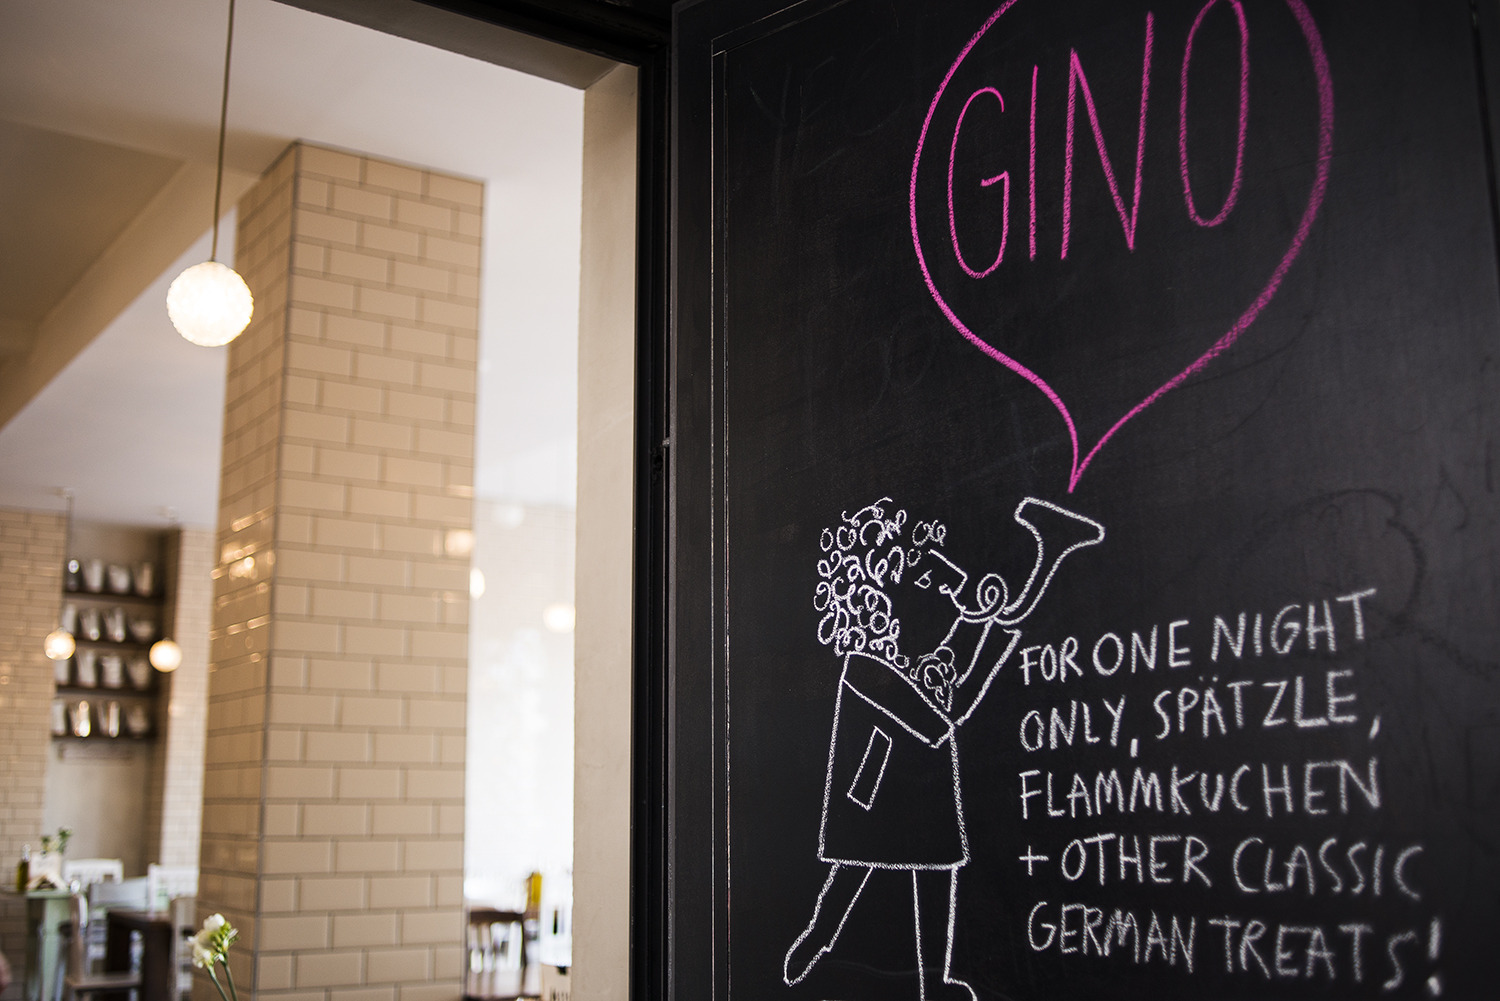 GINO
FOR ONE NIGHT
ONLY, SPÄTZLE,
FLAMMKUCHEN
+ OTHER CLASSIC
GERMAN TREATS!